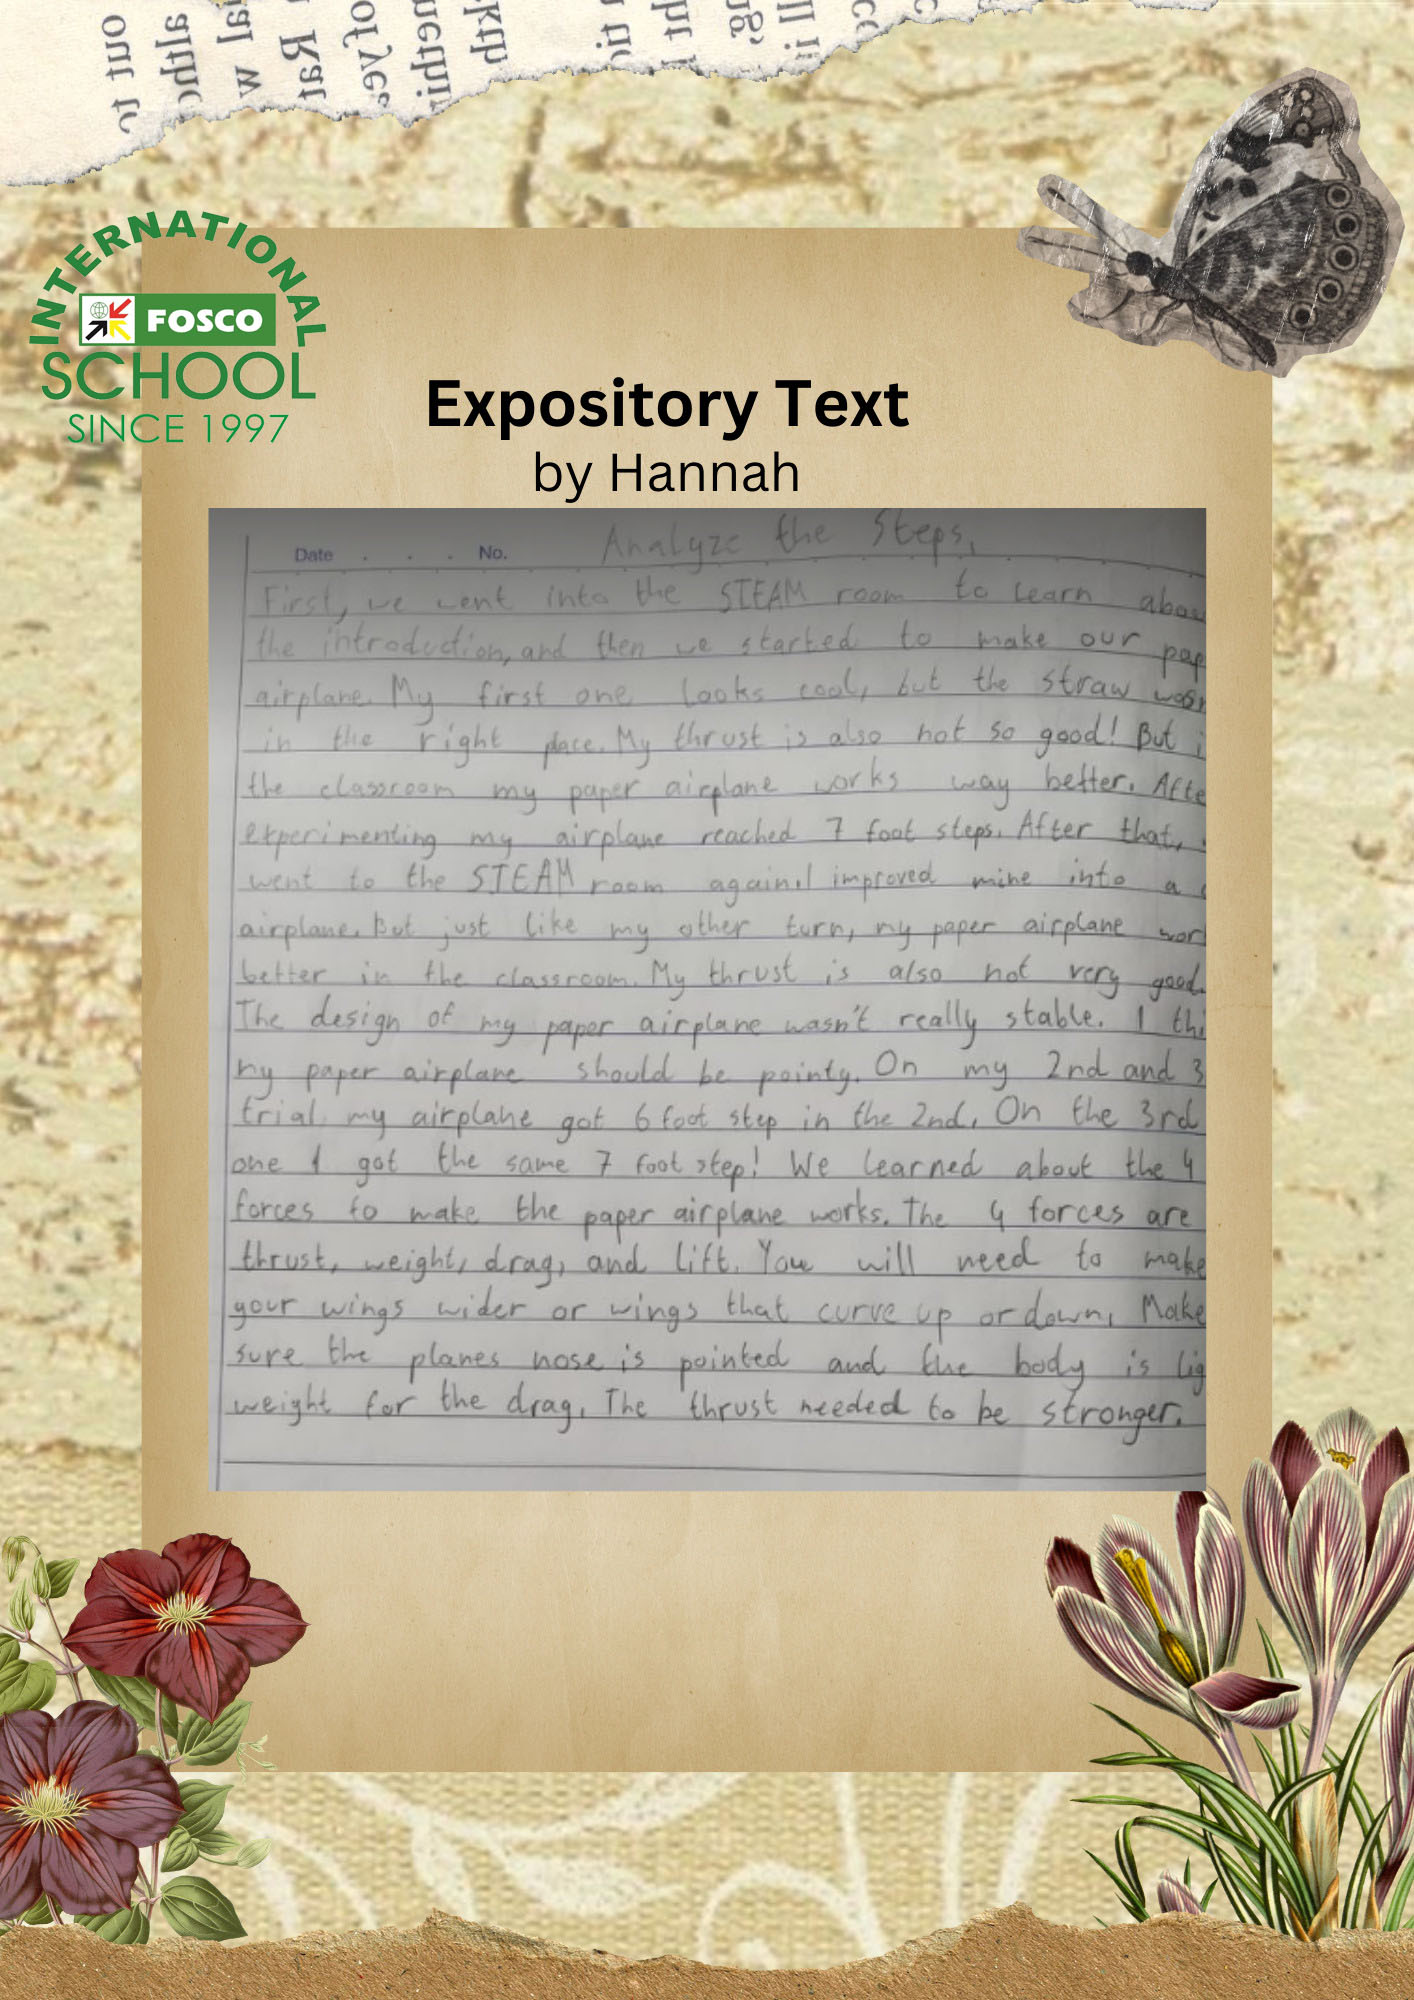 INTERNATIONAL
FOSCO
SCHOOL
SINCE 1997
Expository Text
by Hannah
Date . . . No.
Analyze the Steps.
First, we went into the STEAM room to learn abou
the introduction, and then we started to make our pap
airplane. My first one looks cool, but the straw wasn
in the right place. My thrust is also not so good! But i
the classroom my paper airplane works way better. Afte
experimenting my airplane reached 7 foot steps. After that,
went to the STEAM room again. I improved mine into a
airplane. But just like my other turn, my paper airplane wor
better in the classroom. My thrust is also not very good.
The design of my paper airplane wasn't really stable. I thi
my paper airplane should be pointy. On my 2nd and 3
trial my airplane got 6 foot step in the 2nd. On the 3rd
one I got the same 7 foot step! We learned about the 4
forces to make the paper airplane works. The 4 forces are
thrust, weight, drag, and lift. You will need to make
your wings wider or wings that curve up or down. Make
sure the planes nose is pointed and the body is lig
weight for the drag. The thrust needed to be stronger.